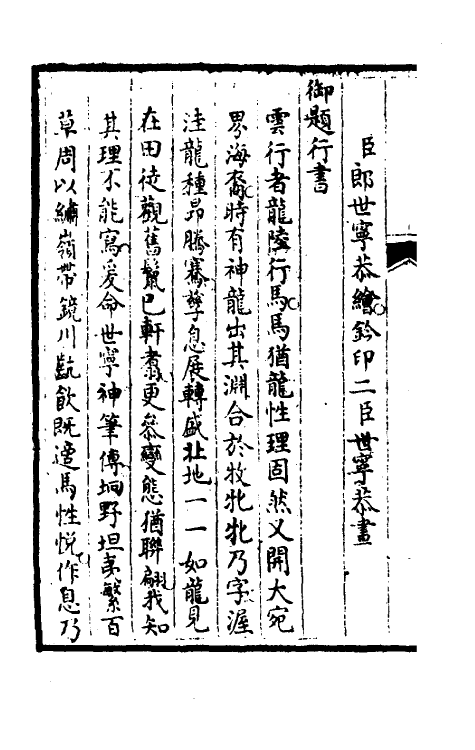 臣郎世寧恭繪鈐印二臣世寧恭畫
御題行書
雲行者龍陸行馬馬猶龍性理固然又聞大宛
界海裔時有神龍出其淵合於牧牝牝乃字渥
洼龍種昂騰騫孳息展轉盛北地一一如龍見
在田徒觀舊鬣已軒翥更參變態猶聯翩我知
其理不能寫爰命世寧神筆傳坰野坦夷繁百
草周以繡嶺帶鏡川齕飲既適馬性悅作息乃